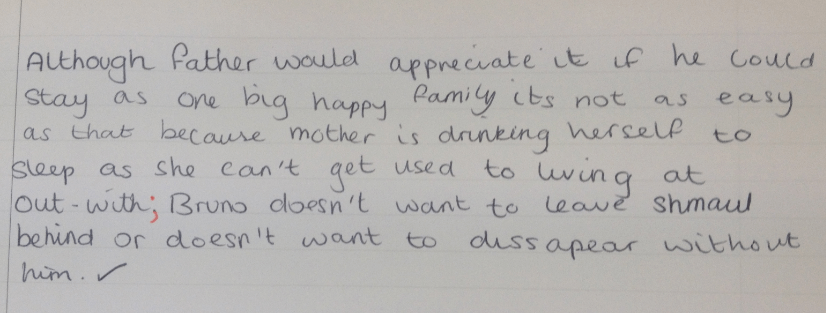 Although father would appreciate it if he could
stay as one big happy family its not as easy
as that because mother is drinking herself to
sleep as she can't get used to living at
out-with; Bruno doesn't want to leave shmaul
behind or doesn't want to dissapear without
him. ✓